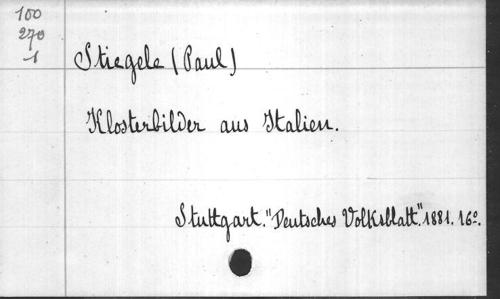 100
270
1
Stiegele (Paul)
Klosterbilder aus Italien.
Stuttgart. "Deutsches Volksblatt". 1881. 16º.